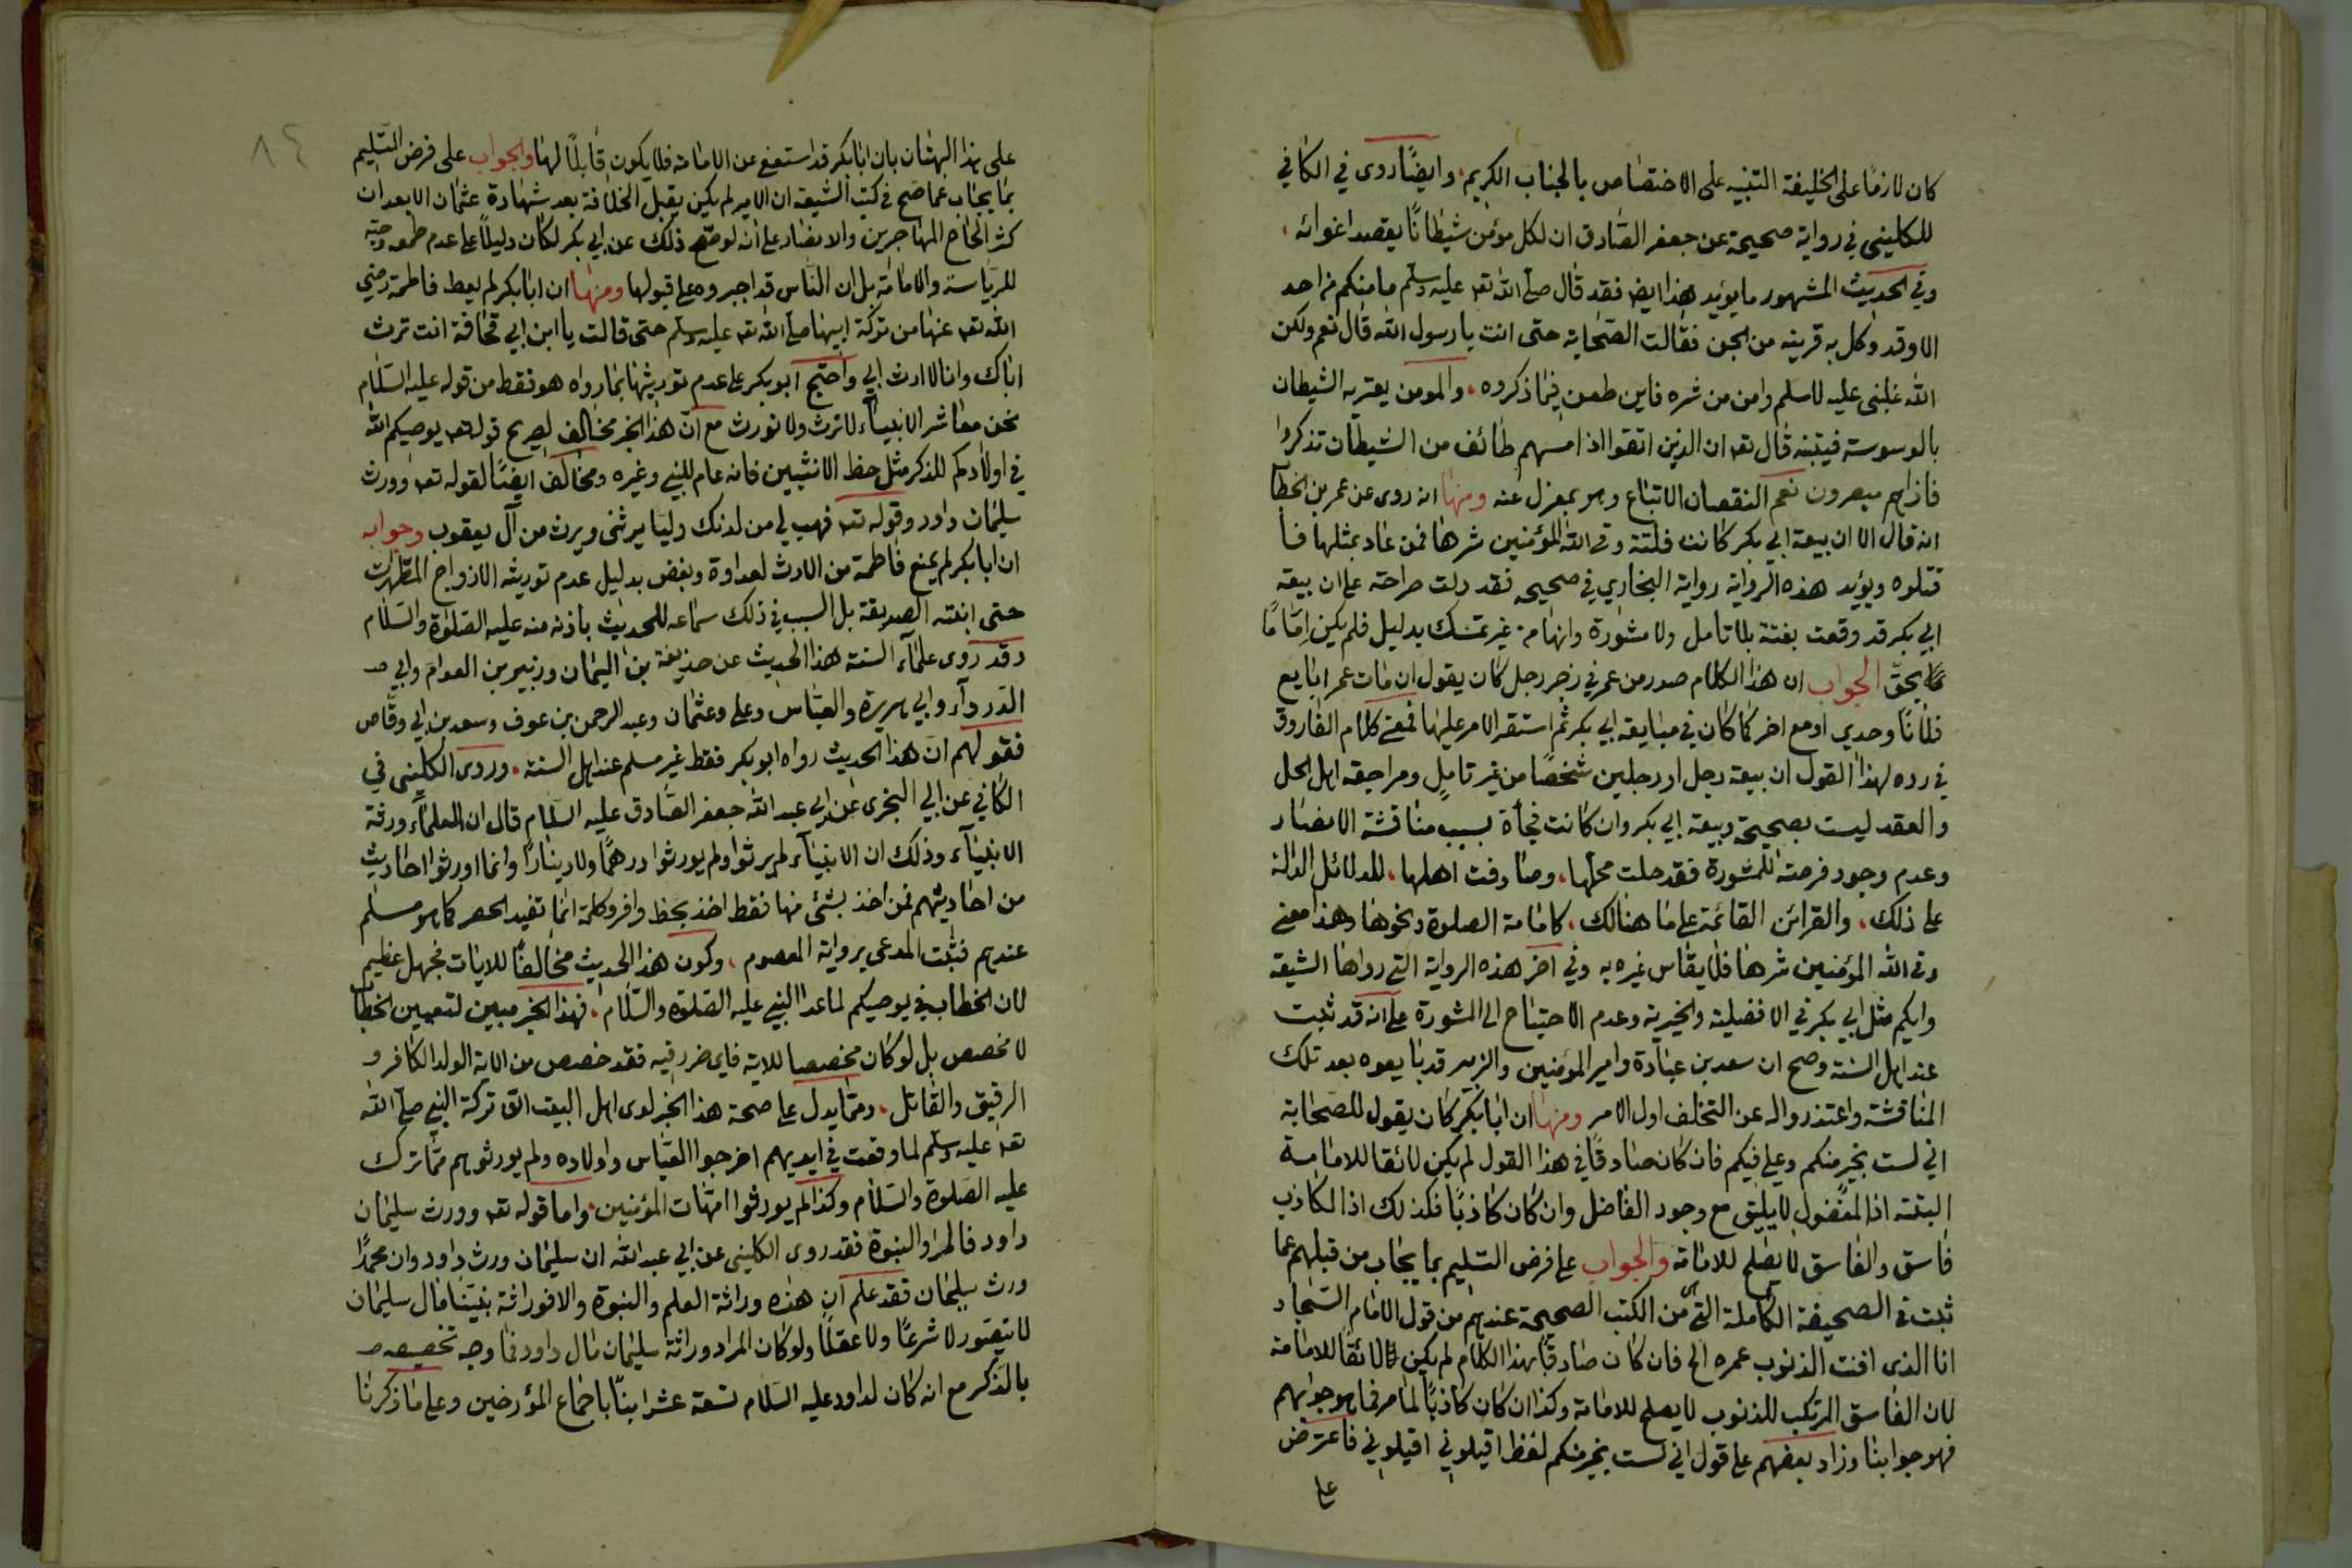 كان لازما على الخليفة التنبيه على الاختصاص بالجناب الكريم، وايضًا روى في الكافي
للكليني في رواية صحيحة عن جعفر الصادق ان لكل مؤمن شيطانًا يقصد اغوائه،
وفي الحديث المشهور ما يؤيد هذا ايضا فقد قال صلى الله تعه عليه وسلم ما منكم من احد
الا وقد وكل به قرينه من الجن فقالت الصحابة حتى انت يا رسول الله قال نعم ولكن
الله غلبنى عليه لاسلم وامن من شره فاين طعن فيما ذكروه، والمومن يعتريه الشيطان
بالوسوسة فيتنبه قال تعه ان الذين اتقوا اذا مسهم طائف من الشيطان تذكروا
فاذا هم مبصرون نعم النقصان الاتباع وهو بمعزل عنه ومنها انه روى عن عمر بن الخطا
انه قال الا ان بيعة ابي بكر كانت فلتة وقى الله المؤمنين شرها فمن عاد بمثلها فا
قتلوه ويؤيد هذه الرواية رواية البخاري في صحيحه فقد دلت صراحته على ان بيعة
ابي بكر قد وقعت بغتة بلا تامل ولا مشورة وانها من غير تمسك بدليل فلم يكن إمَامًا
بحق الجواب ان هذا الكلام صدر من عمر في زجر رجل كان يقول ان مات عمر ابايع
فلانًا وحدي او مع اخر كما كان في مبايعة ابي بكر ثم استقر الامر عليها فمعنى كلام الفاروق
في رده لهذا القول ان بيعة رجل او رجلين شخصًا من غير تامل ومراجعة اهل الحل
والعقد ليست بصحيحة وبيعة ابي بكر وان كانت فجأة بسبب مناقشة الانصار
وعدم وجود فرصة للمشورة فقد حلت محلها، وصادفت اهلها، للدلائل الدالة
على ذلك، والقرائن القائمة على ما هنالك، كامامة الصلوة ونحوها وهذا معنى
وقى الله المؤمنين شرها فلا يقاس غيره به وفي اخر هذه الرواية التي رواها الشيعة
وايكم مثل ابي بكر في الافضلية والخيرية وعدم الاحتياج الى المشورة على انه قد ثبت
عند اهل السنة وصح ان سعد بن عبادة وامير المؤمنين والزبير قد بايعوه بعد تلك
المناقشة واعتذروا له عن التخلف اول الامر ومنها ان ابا بكر كان يقول للصحابة
اني لست بخير منكم وعلي فيكم فان كان صادقًا في هذا القول لم يكن لائقا للامامة
البتة اذ المفضول لا يليق مع وجود الفاضل وان كان كاذبًا فكذلك اذ الكاذب
فاسق والفاسق لا يصلح للامامة والجواب على فرض التسليم بما يجاب من قبلهم عما
ثبت في الصحيفة الكاملة التي من الكتب الصحيحة عندهم من قول الامام السجاد
انا الذى افنت الذنوب عمره الخ فان كان صادقًا بهذا الكلام لم يكن لائقًا للامامة
لان الفاسق المرتكب للذنوب لا يصلح للامامة وكذا ان كان كاذبًا لما مر فما هو جوابهم
فهو جوابنا وزاد بعضهم على قول اني لست بخير منكم لفظ اقيلوني اقيلوني فاعترض
على
٨٤
على هذا البهتان بان ابا بكر قد استعفى عن الامامة فلا يكون قابلًا لها والجواب على فرض التسليم
بما يجاب عما صح في كتب الشيعة ان الامير لم يكن يقبل الخلافة بعد شهادة عثمان الا بعد ان
كثر الحاح المهاجرين والانصار على انه لو صح ذلك عن ابي بكر لكان دليلًا على عدم طمعه وحبه
للرياسة والامامة بل ان الناس قد اجبروه على قبولها ومنها ان ابا بكر لم يعط فاطمة رضي
الله تعه عنها من تركة ابيها صلى الله تعه عليه وسلم حتى قالت يا ابن ابي قحافة انت ترث
اباك وانا لا ارث ابي واحتج ابو بكر على عدم توريثها بما رواه هو فقط من قوله عليه السلام
نحن معاشر الانبياء لا نرث ولا نورث مع ان هذا الخبر مخالف لصريح قوله تعه يوصيكم الله
في اولادكم للذكر مثل حظ الانثيين فانه عام للنبي وغيره ومخالف ايضًا لقوله تعه وورث
سليمان داود وقوله تعه فهب لي من لدنك وليا يرثنى ويرث من آل يعقوب وجوابه
ان ابا بكر لم يمنع فاطمة من الارث لعداوة وبغض بدليل عدم توريثه الازواج المطهرات
حتى ابنته الصديقة بل السبب في ذلك سماعه للحديث باذنه منه عليه الصلوة والسلام
وقد روى علماء السنة هذا الحديث عن حذيفة بن اليمان وزبير بن العوام وابي
الدرداء وابي هريرة والعباس وعلي وعثمان وعبد الرحمن بن عوف وسعد بن ابي وقاص
فقولهم ان هذا الحديث رواه ابو بكر فقط غير مسلم عند اهل السنة، وروى الكليني في
الكافي عن ابي البختري عن ابي عبد الله جعفر الصادق عليه السلام قال ان العلماء ورثة
الانبياء وذلك ان الانبياء لم يرثوا ولم يورثوا درهمًا ولا دينارًا وانما اورثوا احاديث
من احاديثهم فمن اخذ بشئ منها فقط اخذ بحظ وافر وكلمة انما تفيد الحصر كما هو مسلم
عندهم فثبت المدعى برواية المعصوم، وكون هذا الحديث مخالفًا للايات فجهل عظيم
لان الخطاب في يوصيكم لما عدا النبي عليه الصلوة والسلام، فهذا الخبر مبين لتعيين الخطا
لا مخصص بل لو كان مخصصا للاية فاى ضرر فيه فقد خصص من الاية الولد الكافر و
الرقيق والقاتل، ومما يدل على صحة هذا الخبر لدى اهل البيت ان تركة النبي صلى الله
تعه عليه وسلم لما وقعت في ايديهم اخرجوا العباس واولاده ولم يورثوهم مما ترك
عليه الصلوة والسلام وكذا لم يورثوا امهات المؤمنين، واما قوله تعه وورث سليمان
داود فالمراد النبوة فقد روى الكليني عن ابي عبد الله ان سليمان ورث داود وان محمدًا
ورث سليمان فقد علم ان هذه وراثة العلم والنبوة والا فوراثة نبينا مال سليمان
لا يتصور لا شرعًا ولا عقلًا ولو كان المراد وراثة سليمان مال داود فما وجه تخصيصه
بالذكر مع انه كان لداود عليه السلام تسعة عشر ابنًا باجماع المؤرخين وعلى ما ذكرنا